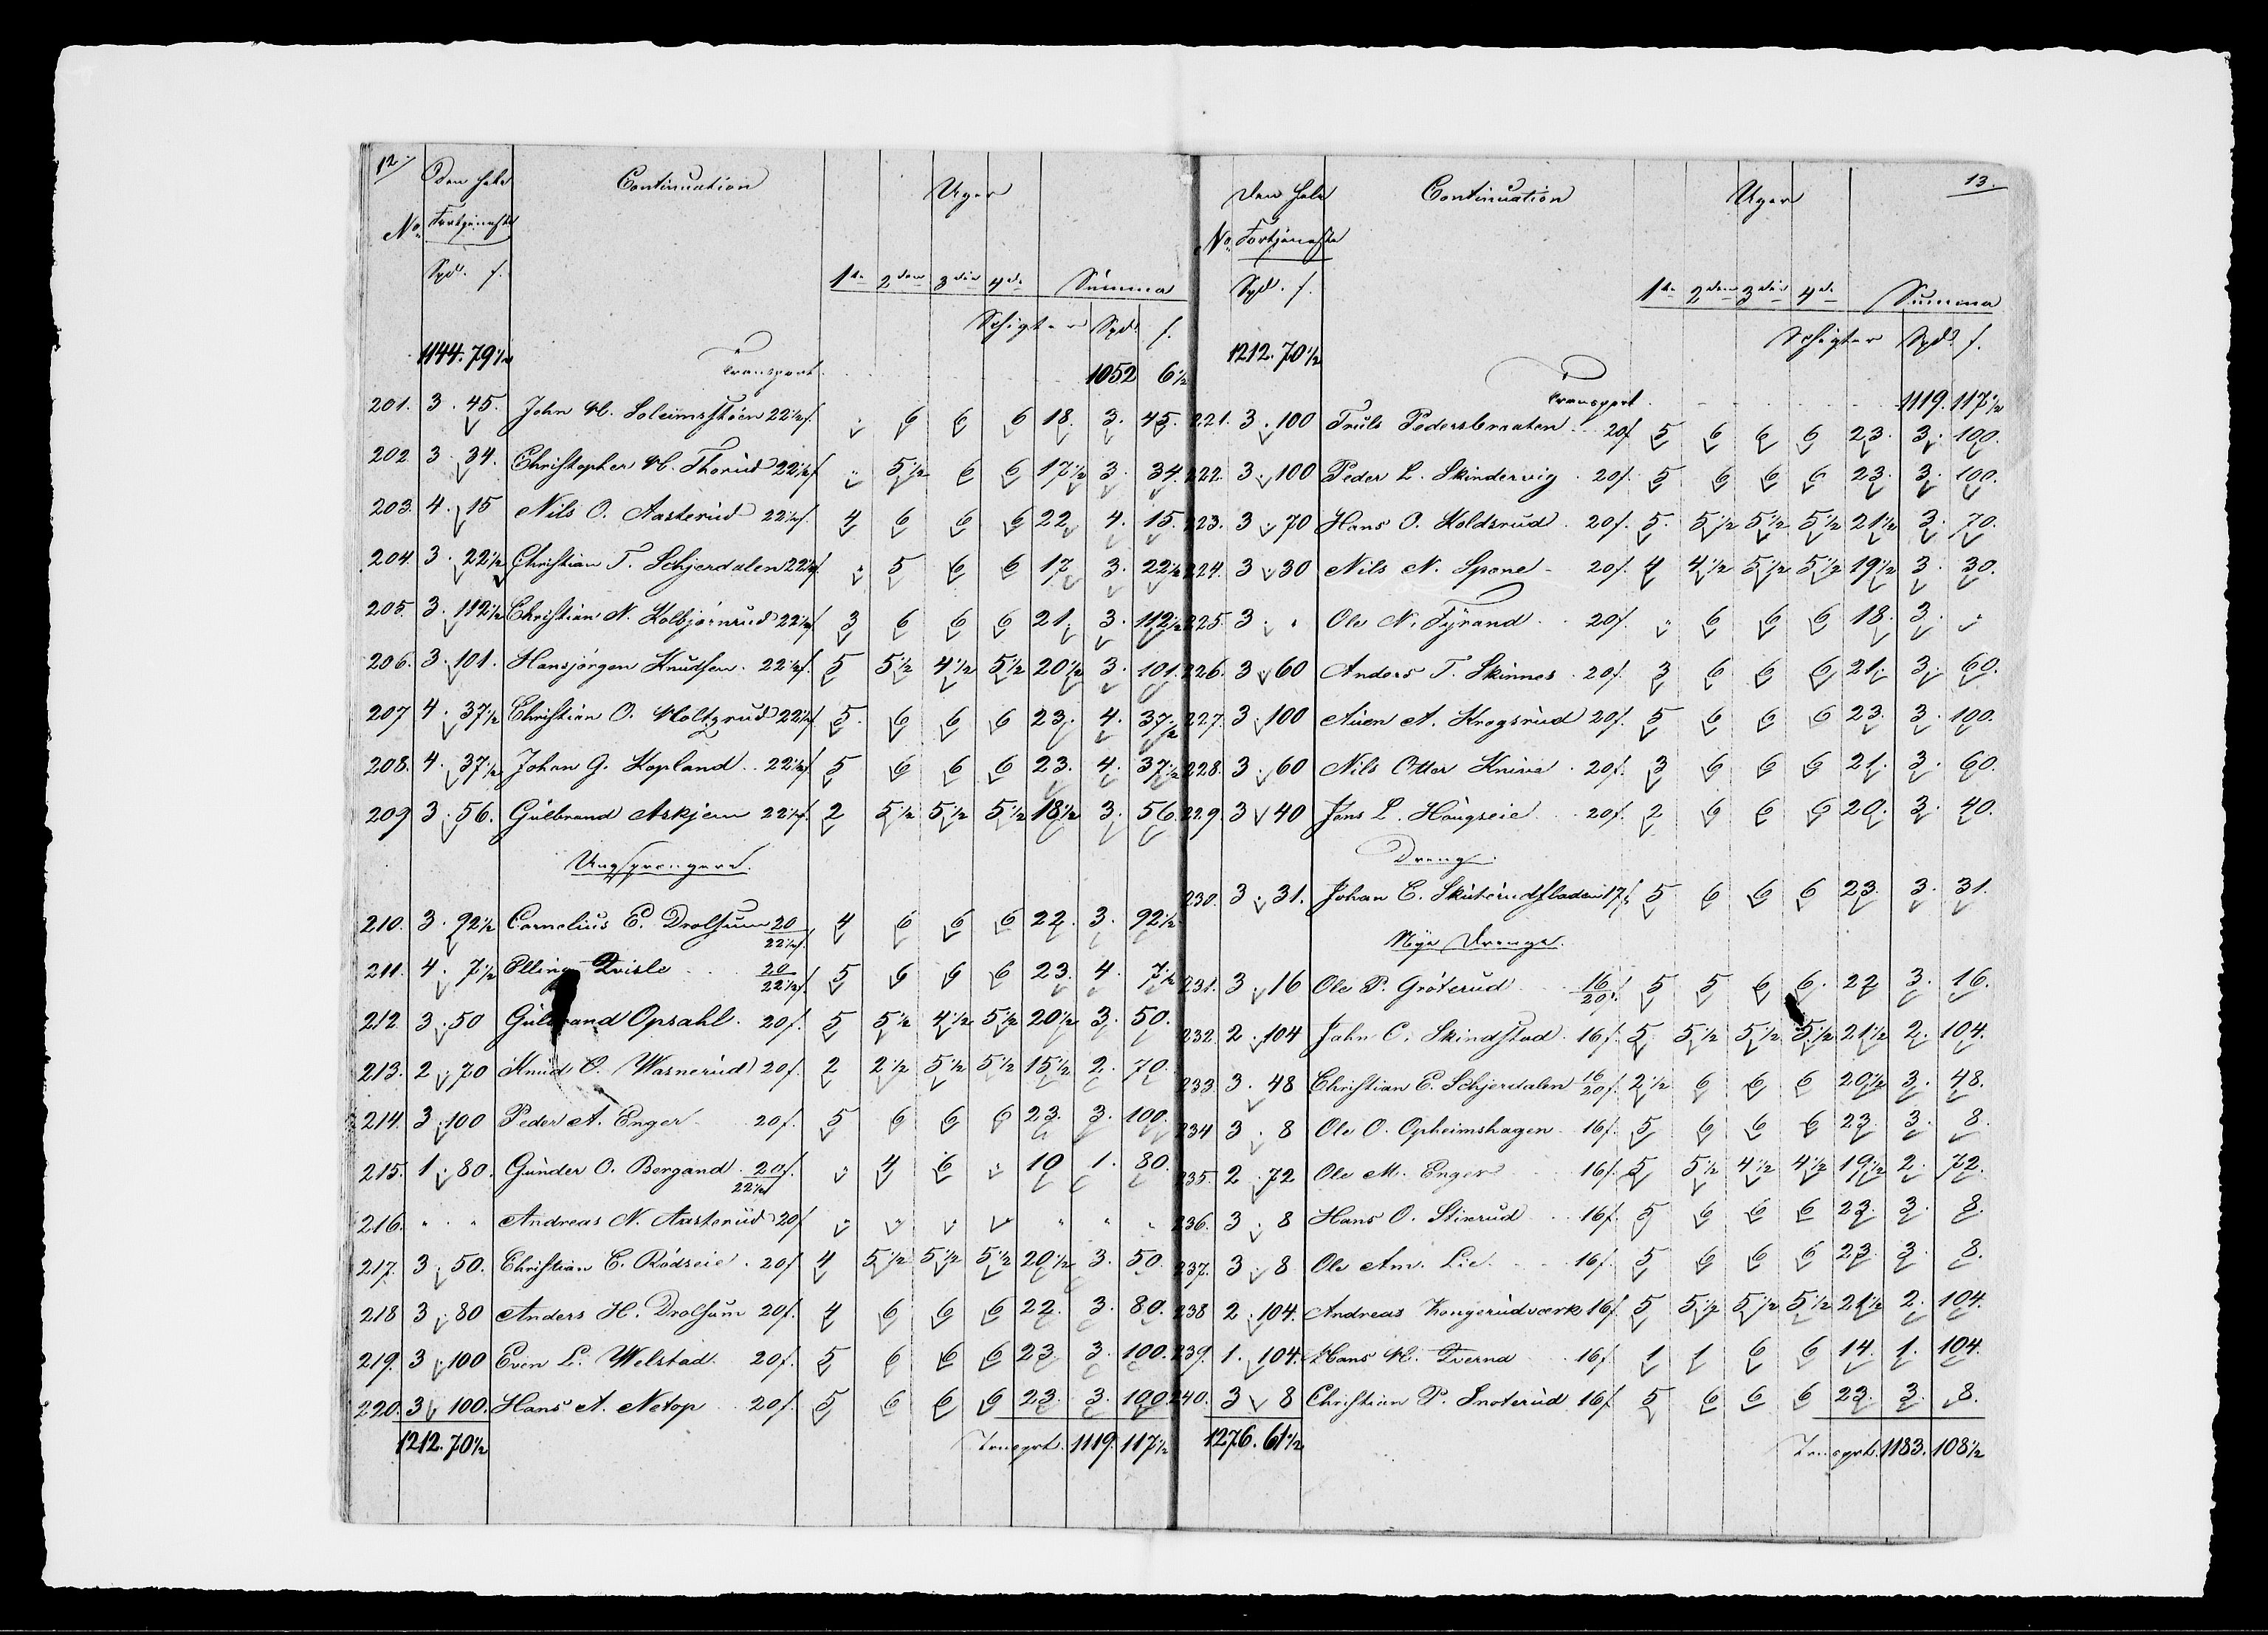 12.
Den hele Continuation Uger
No. Fortjeneste
Spd. s.
1ste 2den 3die 4de Summa
Schigter Spd. s.
1144. 79½ Transport 1052 6½
201. 3. 45. John H. Soleimsstöen 22½ s. " 6 6 6 18. 3. 45.
202 3. 34. Christopher H. Thorud 22½ s. " 5½ 6 6 17½ 3. 34.
203. 4. 15 Nils O. Aasterud 22½ s. 4 6 6 6 22 4. 15.
204. 3. 22½ Christian T. Schjerdalen 22½ s. " 5 6 6 17 3. 22½
205. 3. 112½ Christian N. Kolbjörnrud 22½ s. 3 6 6 6 21. 3. 112½
206. 3. 101. Hansjörgen Knudsen. 22½ s. 5 5½ 4½ 5½ 20½ 3. 101.
207 4. 37½ Christian O. Holtzrud 22½ s. 5. 6 6 6 23. 4. 37½
208. 4. 37½ Johan G. Kopland 22½ s. 5 6 6 6 23. 4. 37½
209 3. 56. Gulbrand Askjem 22½ s. 2 5½ 5½ 5½ 18½ 3. 56.
Ungsprengere.
210. 3. 92½ Cornelius E. Drolsum 20/22½ s. 4 6 6 6 22. 3. 92½
211. 4. 7½ Elling Tvisle 20/22½ s. 5 6 6 6 23. 4. 7½
212 3. 50 Gulbrand Opsahl. 20 s. 5 5½ 4½ 5½ 20½ 3. 50.
213. 2. 70 Knud O. Wasnerud 20 s. 2 2½ 5½ 5½ 15½ 2. 70.
214. 3. 100 Peder A. Enger 20 s. 5 6 6 6 23. 3. 100.
215. 1. 80. Gunder O. Bergand. 20/22½ s. " 4 6 " 10 1. 80.
216. " " Andreas N. Aasterud 20 s. " " " " " " "
217. 3. 50. Christian C. Rödseie. 20 s. 4 5½ 5½ 5½ 20½ 3. 50.
218 3. 80 Anders H. Drolsum 20 s. 4 6 6 6 22. 3. 80.
219. 3. 100 Even L. Welstad. 20 s. 5 6 6 6 23. 3. 100.
220. 3. 100. Hans A. Netop 20 s. 5 6 6 6 23. 3. 100.
1212. 70½ Transprt. 1119. 117½
13.
Den hele Continuation Uger
No. Fortjeneste
Spd. s.
1ste 2den 3die 4de Summa
Schigter Spd. s.
1212. 70½
Transport 1119. 117½
221. 3. 100 Truls Pedersbraaten 20 s. 5 6 6 6 23. 3. 100.
222. 3. 100 Peder L. Skindervig. 20 s. 5 6 6 6 23. 3. 100.
223. 3. 70 Hans O. Koldsrud. 20 s. 5. 5½ 5½ 5½ 21½ 3. 70.
224. 3. 30 Nils N. Spone 20 s. 4 4½ 5½ 5½ 19½ 3. 30.
225. 3. " Ole N. Fyrand 20 s. " 6 6 6 18. 3. "
226. 3. 60 Anders T. Skinnes. 20 s. 3 6 6 6 21. 3. 60.
227. 3. 100 Auen A. Krogsrud 20 s. 5 6 6 6 23. 3. 100.
228. 3. 60 Nils Otter Kniva. 20 s. 3 6 6 6 21. 3. 60.
229. 3. 40 Jens L. Haugseie 20 s. 2 6 6 6 20. 3. 40.
Dreng.
230. 3. 31. Johan C. Skuterudfladen 17 s. 5 6 6 6 23. 3. 31.
Nye Drenge.
231. 3. 16 Ole P. Gröterud 16/20 s. 5 5 6 6. 22 3. 16.
232. 2. 104 John C. Skindstad. 16 s. 5. 5½ 5½ 5½ 21½ 2. 104.
233. 3. 48 Christian E. Schjerdalen 16/20 s. 2½ 6 6 6 20½ 3. 48.
234 3. 8 Ole O. Opheimshagen. 16 s. 5 6 6 6 23. 3. 8.
235. 2. 72 Ole M. Enger 16 s. 5 5½ 4½ 4½ 19½ 2. 72.
236. 3. 8 Hans O. Stixrud 16 s. 5 6 6 6 23. 3. 8.
237. 3. 8 Ole Am. Lie. 16 s. 5 6 6 6 23. 3. 8.
238 2. 104. Andreas Kongerudværk 16 s. 5 5½ 5½ 5½ 21½ 2. 104.
239. 1. 104. Hans H. Tverna 16 s. 1 1 6 6 14. 1. 104.
240. 3. 8 Christian P. Snoterud 16 s. 5 6 6 6 23. 3. 8.
1276. 61½ Transprt. 1183. 108½